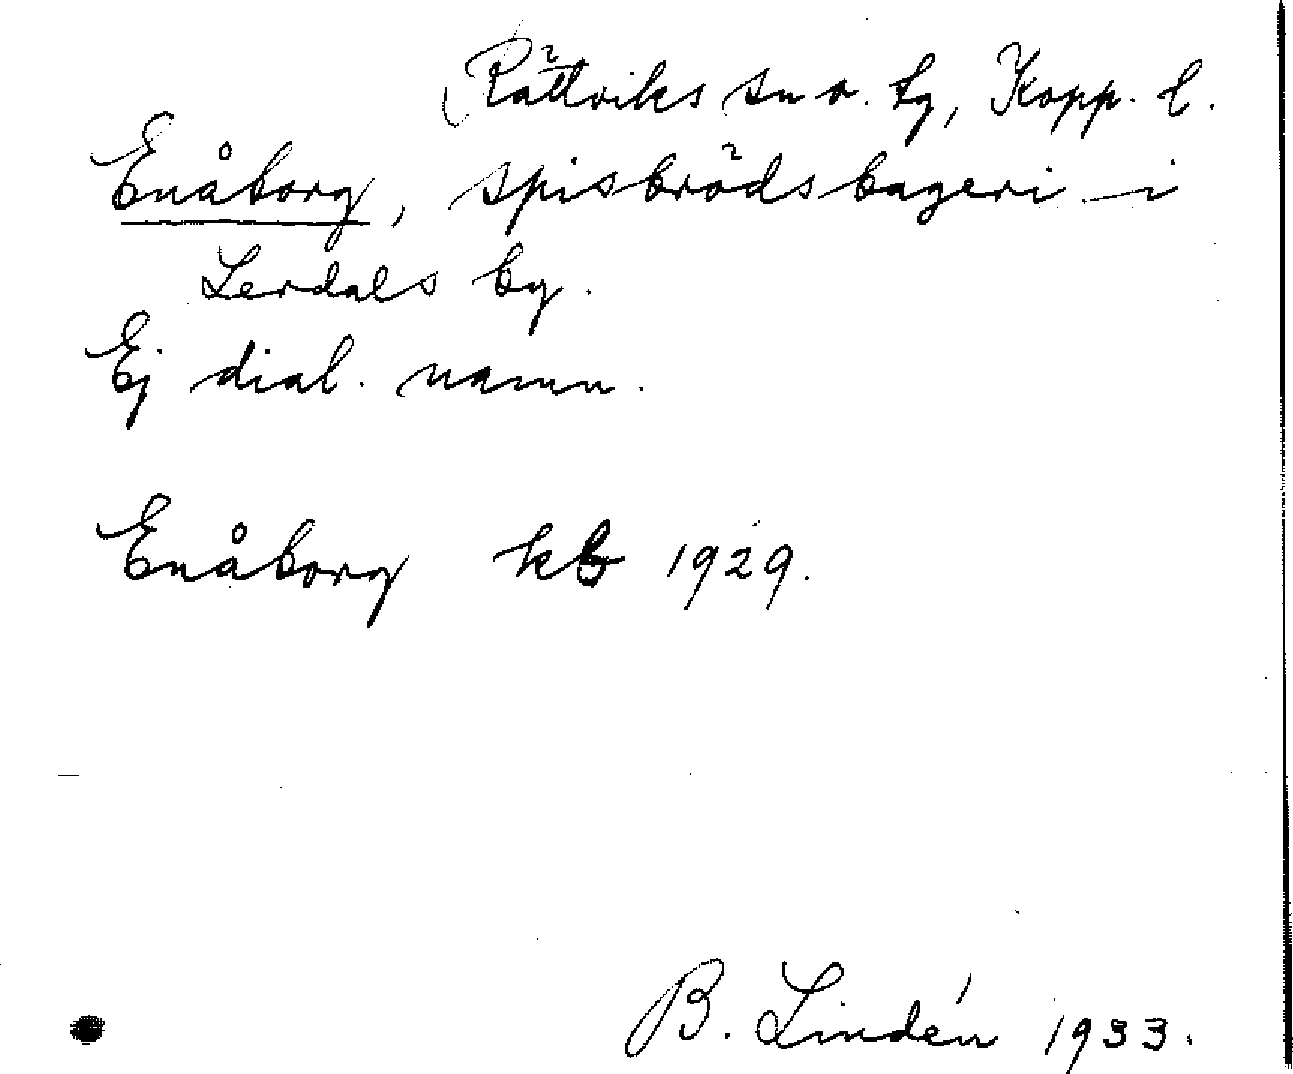 Rättviks sn o. tg, Kopp. l.
Enåborg, spisbrödsbageri i
Lerdals by.
Ej dial. namn.
Enåborg kb 1929.
B. Lindén 1933.